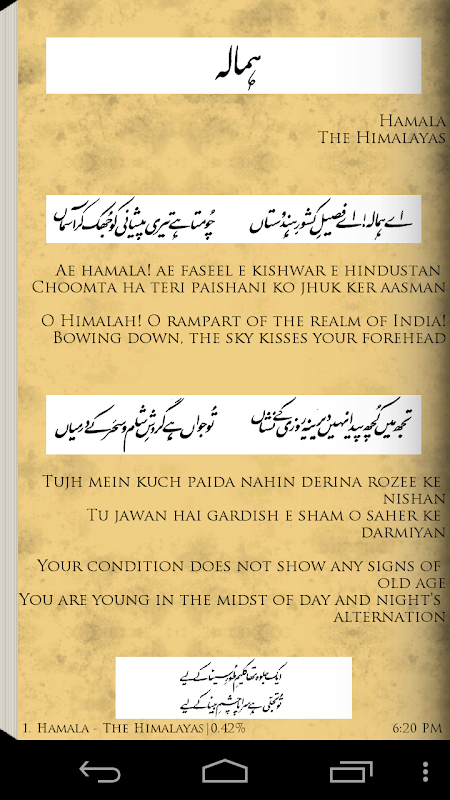 ہمالہ
Hamala
The Himalayas
اے ہمالہ! اے فصیلِ کشورِ ہندوستاں چُومتا ہے تیری پیشانی کو جُھک کر آسماں
Ae hamala! ae faseel e kishwar e hindustan
Choomta ha teri paishani ko jhuk ker aasman
O Himalah! O rampart of the realm of India!
Bowing down, the sky kisses your forehead
تجھ میں کُچھ پیدا نہیں دیرینہ روزی کے نشاں تُو جواں ہے گردشِ شام و سحَر کے درمیاں
Tujh mein kuch paida nahin derina rozee ke
nishan
Tu jawan hai gardish e sham o saher ke
darmiyan
Your condition does not show any signs of
old age
You are young in the midst of day and night's
alternation
ایک جلوہ تھا کلیمِ طُورِ سینا کے لیے
تُو تجلّی ہے سراپا چشمِ بینا کے لیے
1. Hamala - The Himalayas|0.42% 6:20 PM